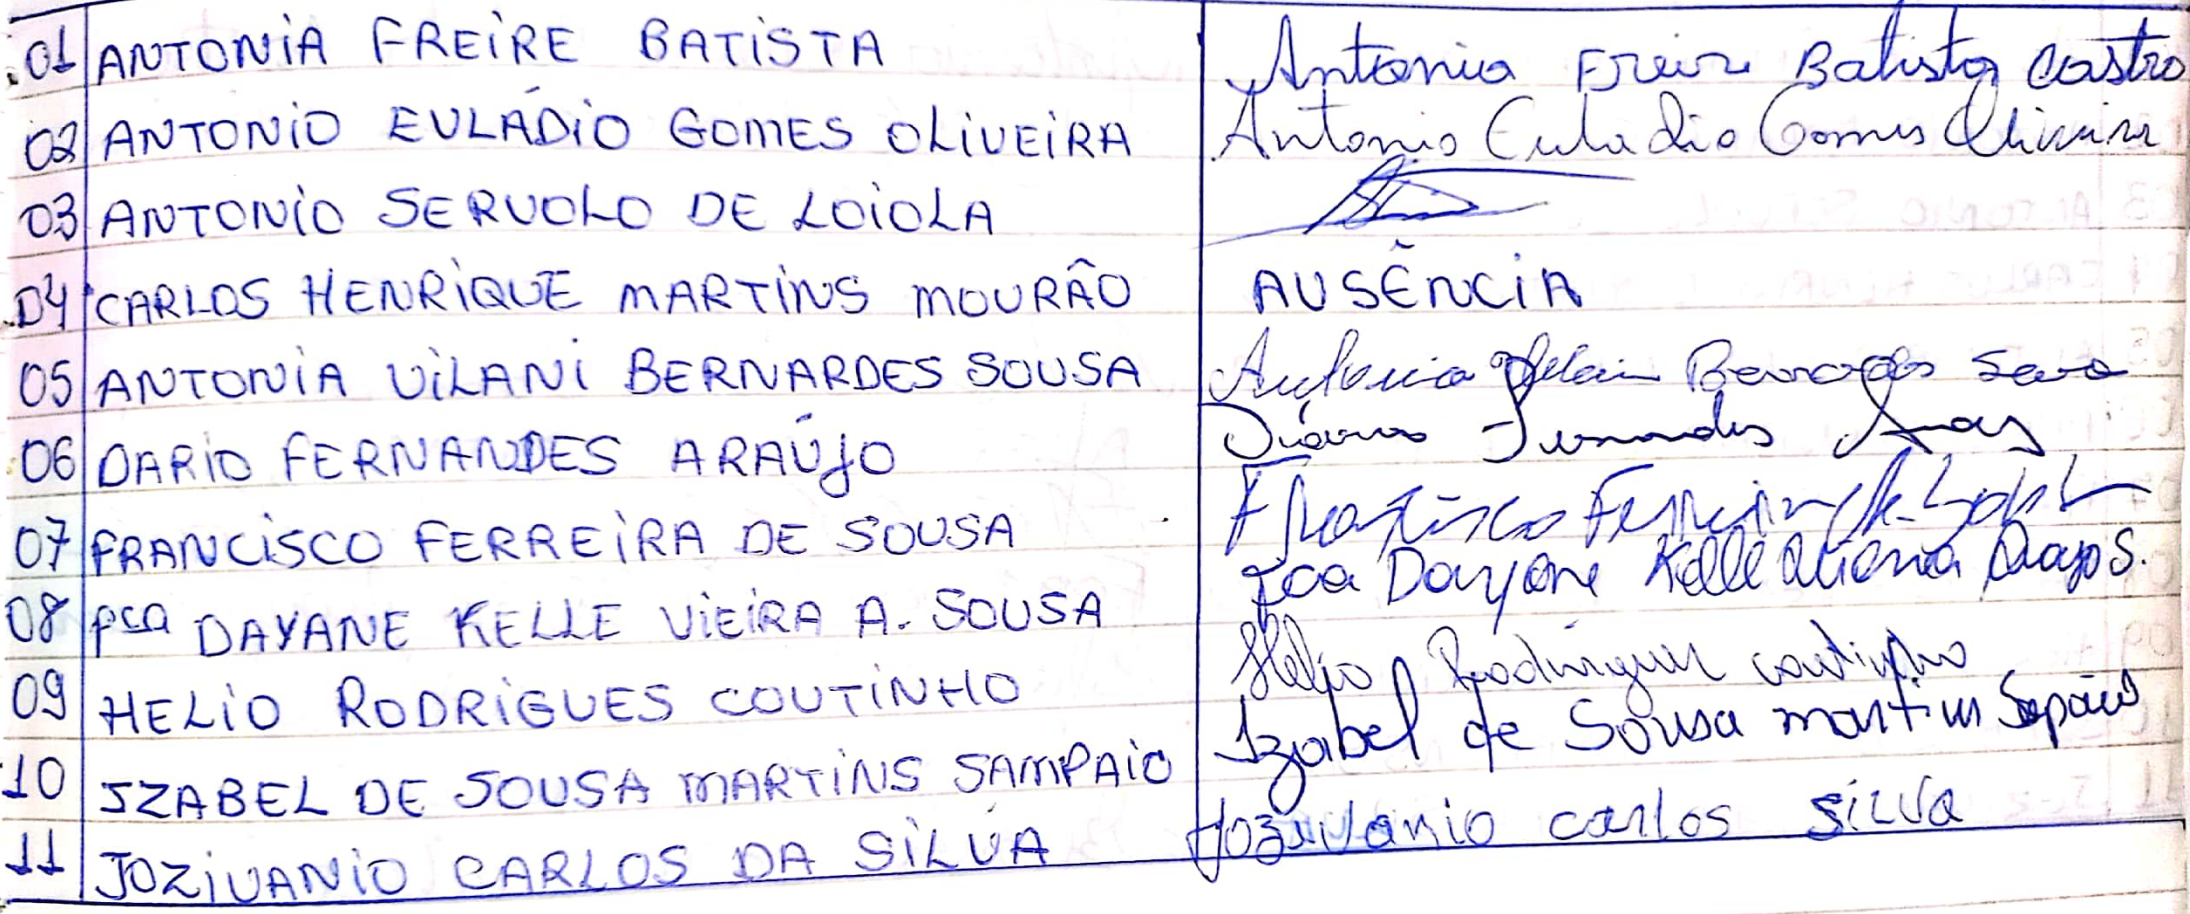 01 ANTONIA FREIRE BATISTA Antonia Freire Batista Castro
02 ANTONIO EULÁDIO GOMES OLIVEIRA Antonio Euladio Gomes Oliveira
03 ANTONIO SERVOLO DE LOIOLA
04 CARLOS HENRIQUE MARTINS MOURÃO AUSÊNCIA
05 ANTONIA VILANI BERNARDES SOUSA Antonia
06 DARIO FERNANDES ARAÚJO Fernandes
07 FRANCISCO FERREIRA DE SOUSA Francisco Ferreira
08 Fca DAYANE KELLE VIEIRA A. SOUSA Fca Dayane Kelle S.
09 HELIO RODRIGUES COUTINHO Helio Rodrigues coutinho
10 IZABEL DE SOUSA MARTINS SAMPAIO Izabel de Sousa martins
11 JOZIVANIO CARLOS DA SILVA Jozivanio carlos silva